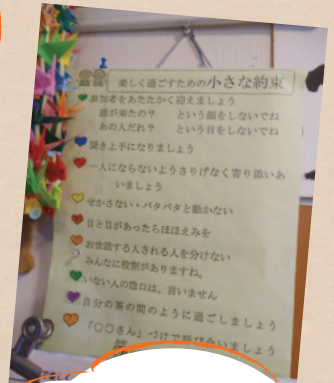 楽しく過ごすための小さな約束
参加者をあたたかく迎えましょう
誰が来たの?　という顔をしないでね
あの人だれ?　という目をしないでね
聞き上手になりましょう
一人にならないようさりげなく寄り添いあ
いましょう
せかさない・バタバタと動かない
目と目があったらほほえみを
お世話する人される人を分けない
みんなに役割がありますね。
いない人の陰口は、言いません
自分の茶の間のように過ごしましょう
「〇〇さん」づけで呼び合いましょう